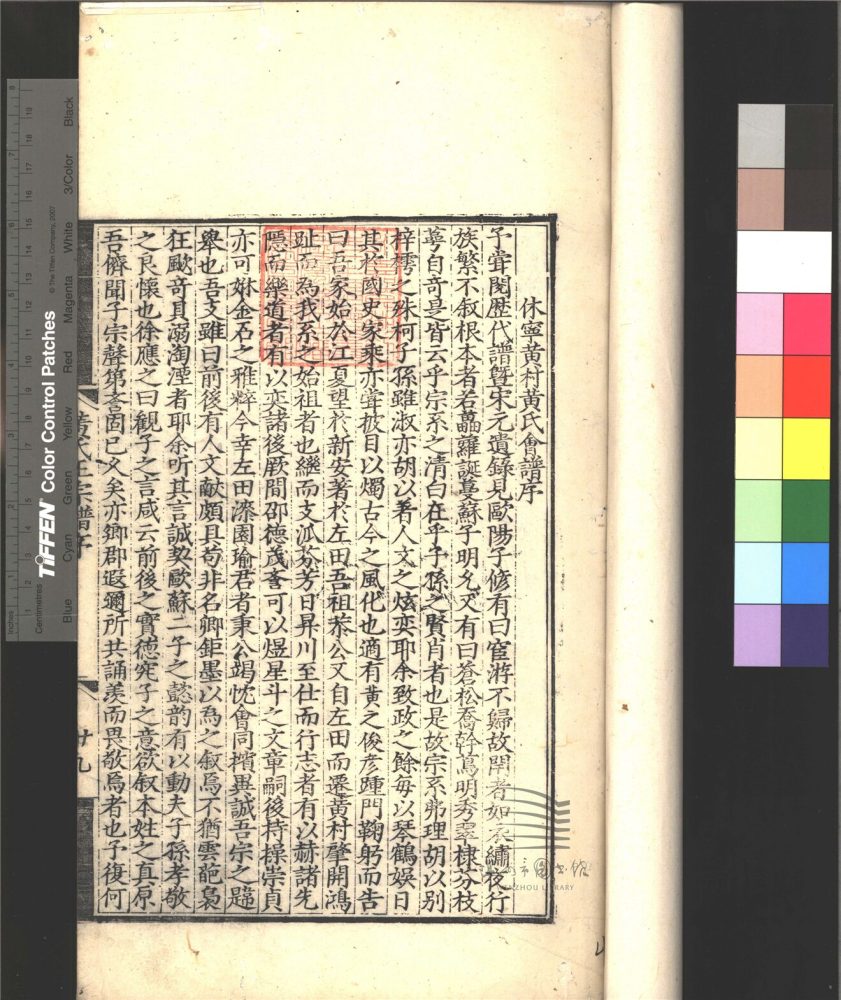 休寧黃村黃氏會譜序
予嘗閱歷代譜暨宋元遺錄見歐陽子修有曰宦游不歸故閈者如衣繡夜行
族繁不叙根本者若蘿誕蔓蘇子明允又有曰蒼松喬幹蔦明秀靈棣芬枝
萼自奇是皆云乎宗系之清白在乎子孫之賢肖者也是故宗系弗理胡以別
梓樗之殊柯子孫雖淑亦胡以著人文之炫奕耶余致政之餘每以琴鶴娛日
其於國史家乘亦嘗披目以燭古今之風化也適有黃之俊彥踵門鞠躬而告
曰吾家始於江夏望於新安著於左田吾祖恭公又自左田而遷黃村肇開鴻
趾而為我系之始祖者也繼而支派芬芳日昇川至仕而行志者有以赫諸先
隱而樂道者有以奕諸後厥間邵德茂耆可以煜星斗之文章嗣後持操崇貞
亦可妹金石之雅粹今幸左田漆園瑜君者秉公竭忱會同擯異誠吾宗之韙
舉也吾支雖曰前後有人文獻頗具苟非名卿鉅墨以為之叙焉不猶雲葩裊
狂颷奇具溺淘湮者耶余听其言誠契歐蘇二子之懿韵有以動夫子孫孝敬
之良懷也徐應之曰觀子之言咸云前後之實德究子之意欲叙本姓之真原
吾儕聞子宗聲第耆固已久矣亦鄉郡遐邇所共誦羨而畏敬焉者也予復何
黃氏正宗譜序
廿九
Inches
Centimetres
TIFFEN Color Control Patches
© The Tiffen Company, 2007
Blue
Cyan
Green
Yellow
Red
Magenta
White
3/Color
Black
LIBRARY